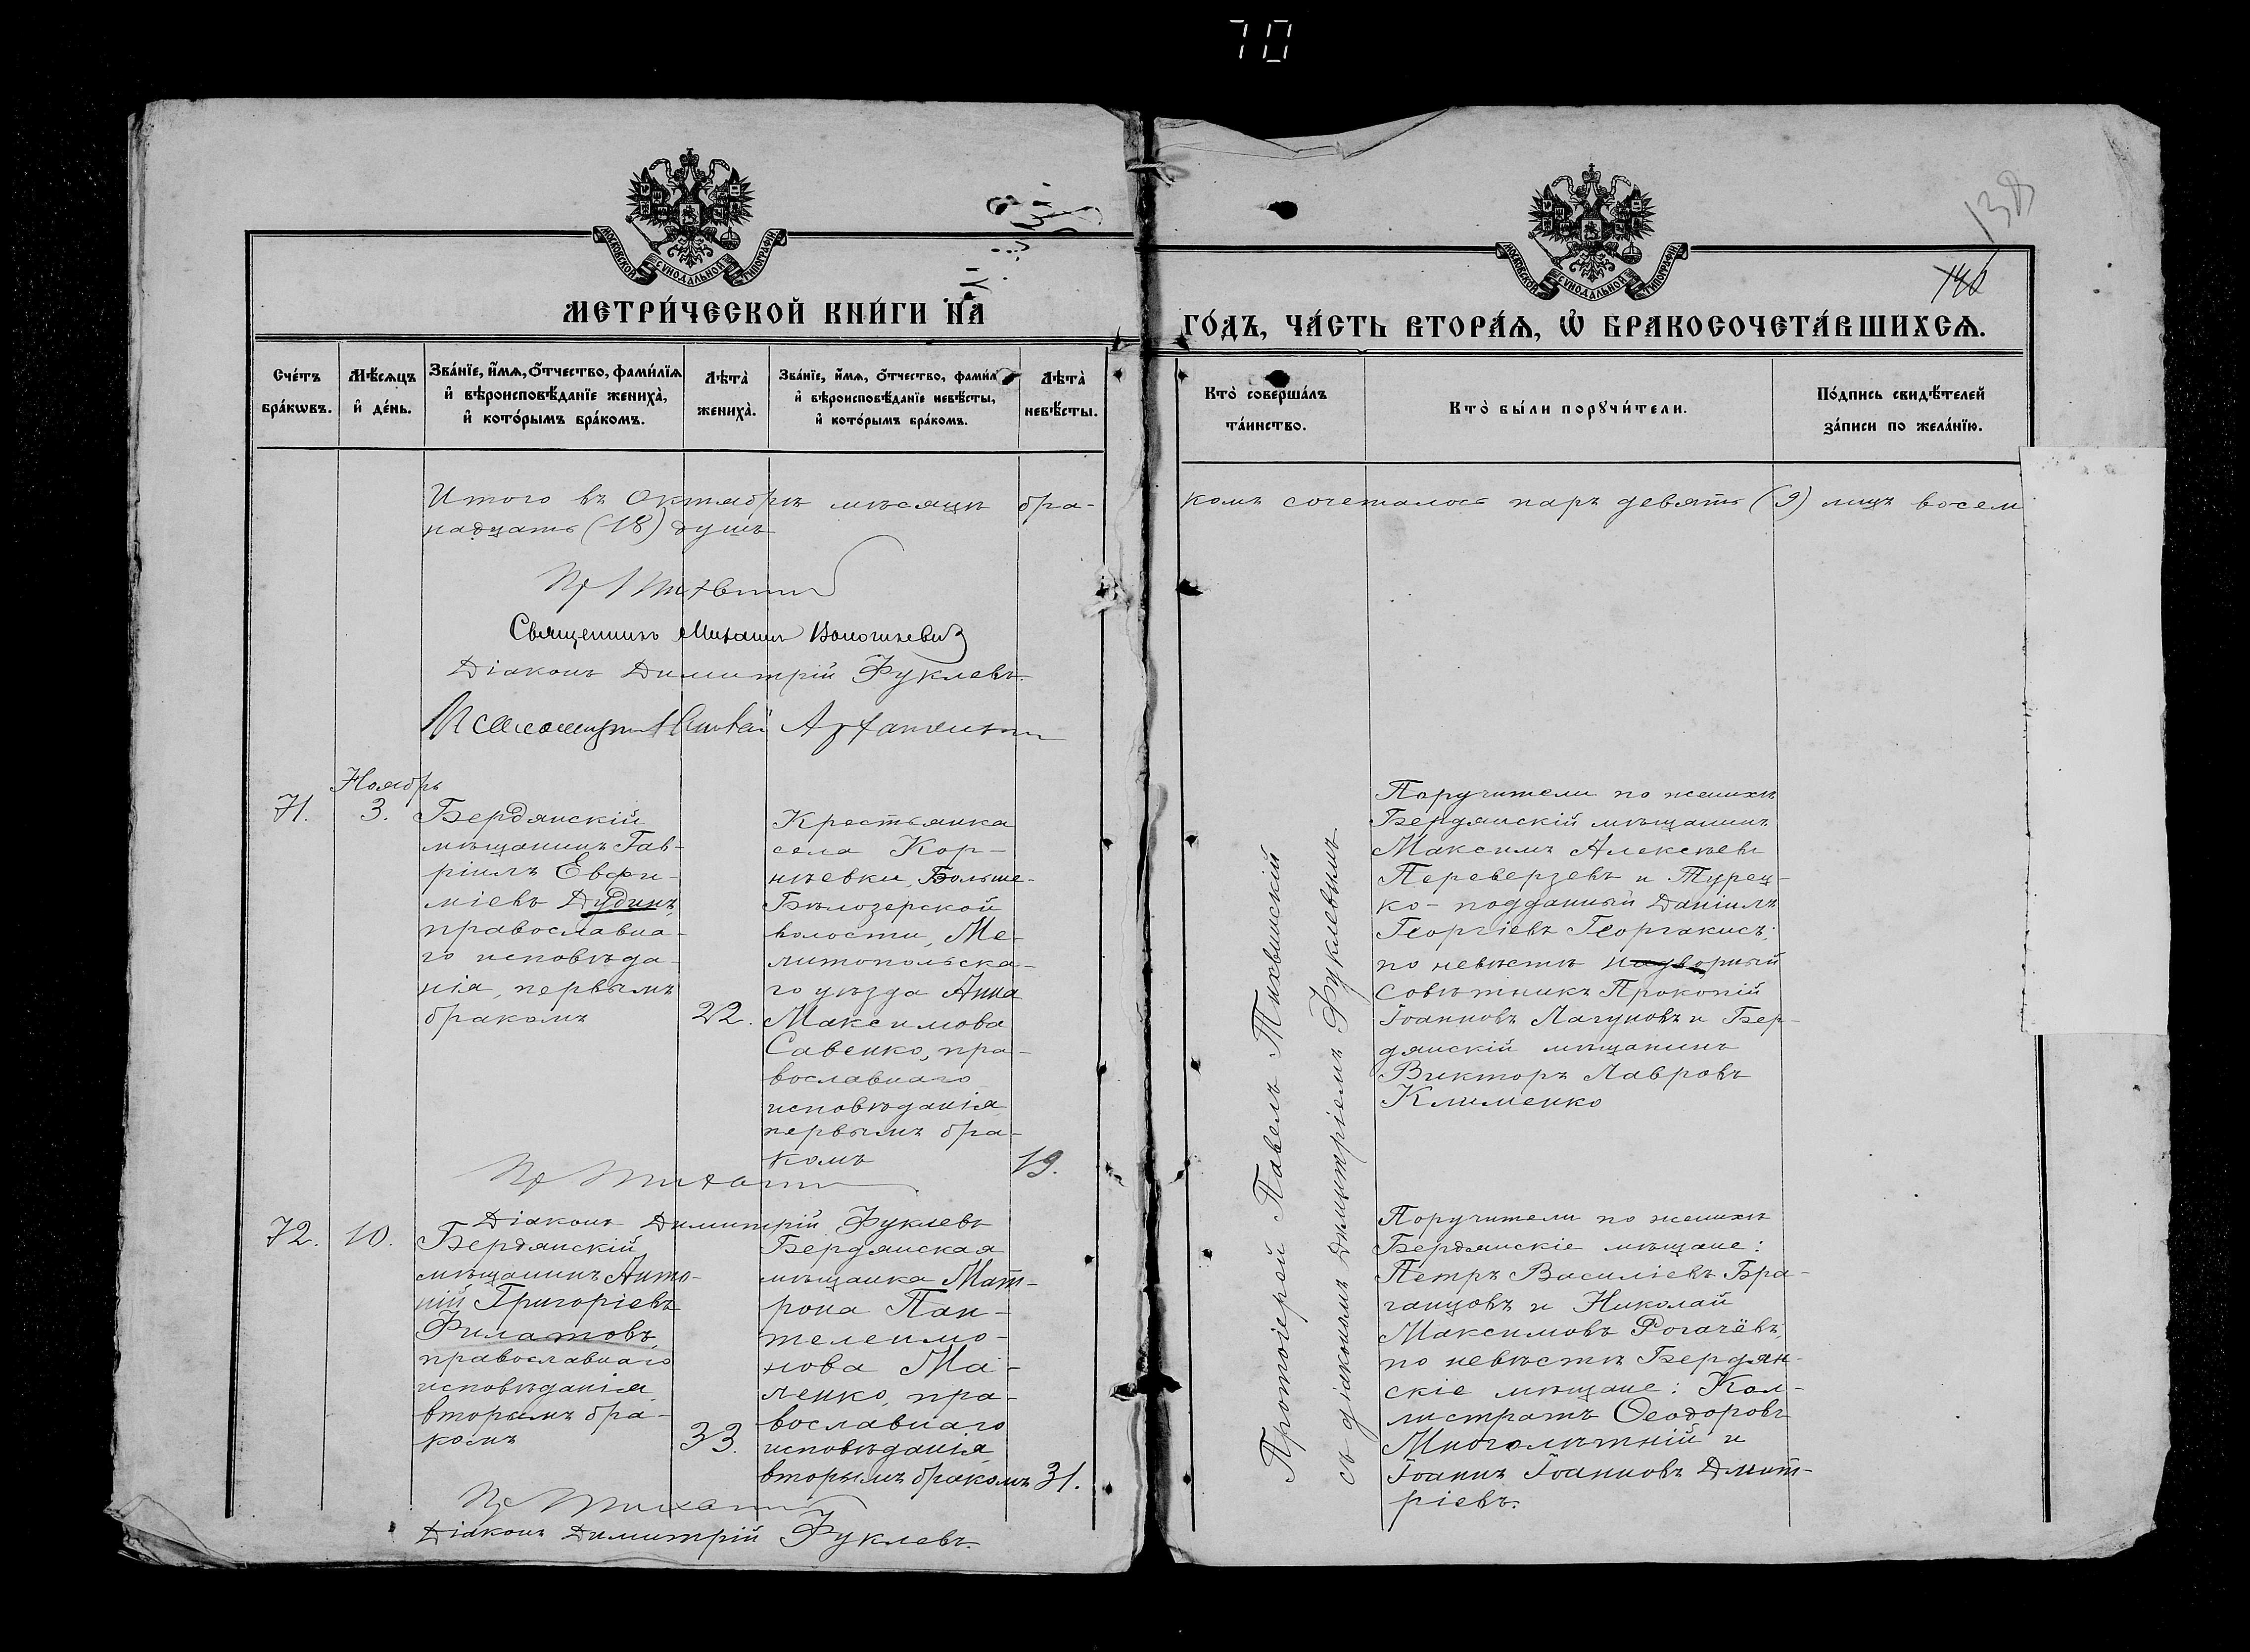 70
138
140
МОСКОВСКОЙ СѴНОДАЛЬНОЙ ТИПОГРАФІИ
МОСКОВСКОЙ СѴНОДАЛЬНОЙ ТИПОГРАФІИ
МЕТРИ́ЧЕСКОЙ КНИ́ГИ НА
ГО́ДЪ, ЧА́СТЬ ВТОРА́Ѧ, Ѽ БРАКОСОЧЕТА́ВШИХСѦ.
Сче́тъ бра́кѡвъ.
Мѣ́сѧцъ и҆ де́нь.
Зва́нїе, и҆́мѧ, ѻ҆́тчество, фами́лїѧ и҆ вѣроисповѣ́данїе жениха̀, и҆ кото́рымъ бра́комъ.
Лѣта̀ жениха̀.
Зва́нїе, и҆́мѧ, ѻ҆́тчество, фами́л и҆ вѣроисповѣ́данїе невѣ́сты, и҆ кото́рымъ бра́комъ.
Лѣта̀ невѣ́сты.
Кто̀ соверша́лъ та́инство.
Кто̀ бы́ли порꙋчи́тели.
По́дпись свидѣ́телей за́писи по жела́нїю.
Итого въ Октябрѣ мѣсяцѣ бра-
комъ сочеталось паръ девять (9) лицъ восем
надцать (18) душъ
Священникъ Михаилъ
Діаконъ Димитрій Фуклевъ.
Ноябрь
71.
3.
Бердянскій
мѣщанинъ Гав-
ріилъ Евфи-
міевъ Дудинъ,
православна-
го исповѣда-
нія, первымъ
бракомъ
22.
Крестьянка
села Кор-
нѣевки, Больше-
Бѣлозерской
волости, Ме-
литопольска-
го уѣзда Анна
Максимова
Савенко, пра-
вославнаго
исповѣданія
первымъ бра-
комъ
19.
Протоіерей Павелъ Тихвинскій
съ діакономъ Димитріемъ Фуклевымъ
Поручители по женихѣ
Бердянскій мѣщанинъ
Максимъ Алексѣевъ
Переверзевъ и Турец-
ко-подданный Даніилъ
Георгіевъ Георгакисъ;
по невѣстѣ надворный
Совѣтникъ Прокопій
Іоанновъ Лагуновъ и Бер-
дянскій мѣщанинъ
Викторъ Лавровъ
Клименко
Діаконъ Димитрій Фуклевъ
72.
10.
Бердянскій
мѣщанинъ Анто-
ній Григоріевъ
Филатовъ,
православнаго
исповѣданія
вторымъ бра-
комъ
33.
Бердянская
мѣщанка Мат-
рона Пан-
телеимо-
нова Ма-
ленко, пра-
вославнаго
исповѣданія
вторымъ бракомъ
31.
Поручители по женихѣ
Бердянскіе мѣщане:
Петръ Василіевъ Бра-
ганцовъ и Николай
Максимовъ Рогачёвъ;
по невѣстѣ Бердян-
скіе мѣщане: Кал-
листратъ Ѳеодоровъ
Многолѣтній и
Іоаннъ Іоанновъ Дмит-
ріевъ.
Діаконъ Димитрій Фуклевъ.